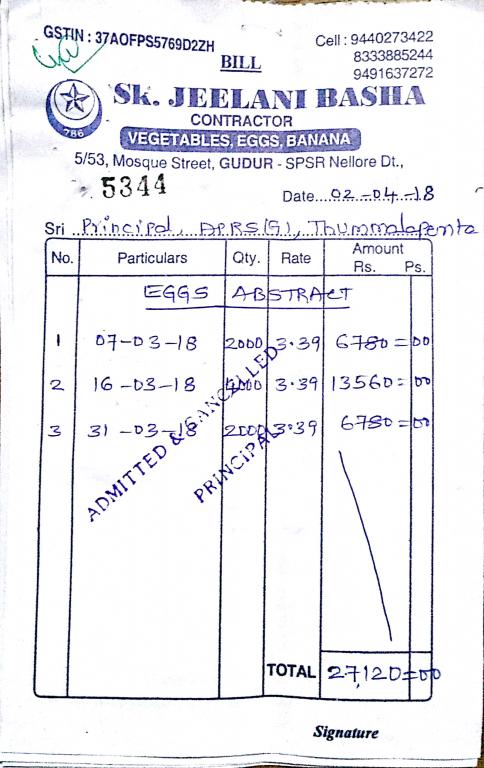 GSTIN : 37AOFPS5769D2ZH
Cell : 9440273422
8333885244
9491637272
BILL
786
Sk. JEELANI BASHA
CONTRACTOR
VEGETABLES, EGGS, BANANA
5/53, Mosque Street, GUDUR - SPSR Nellore Dt.,
5344
Date 02-04-18
Sri Principal, APRS(G), Thummalapenta
No. Particulars Qty. Rate Amount Rs. Ps.
EGGS ABSTRACT
1 07-03-18 2000 3.39 6780=00
2 16-03-18 4000 3.39 13560=00
3 31-03-18 2000 3.39 6780=00
ADMITTED & CANCELLED
PRINCIPAL
TOTAL 27,120=00
Signature